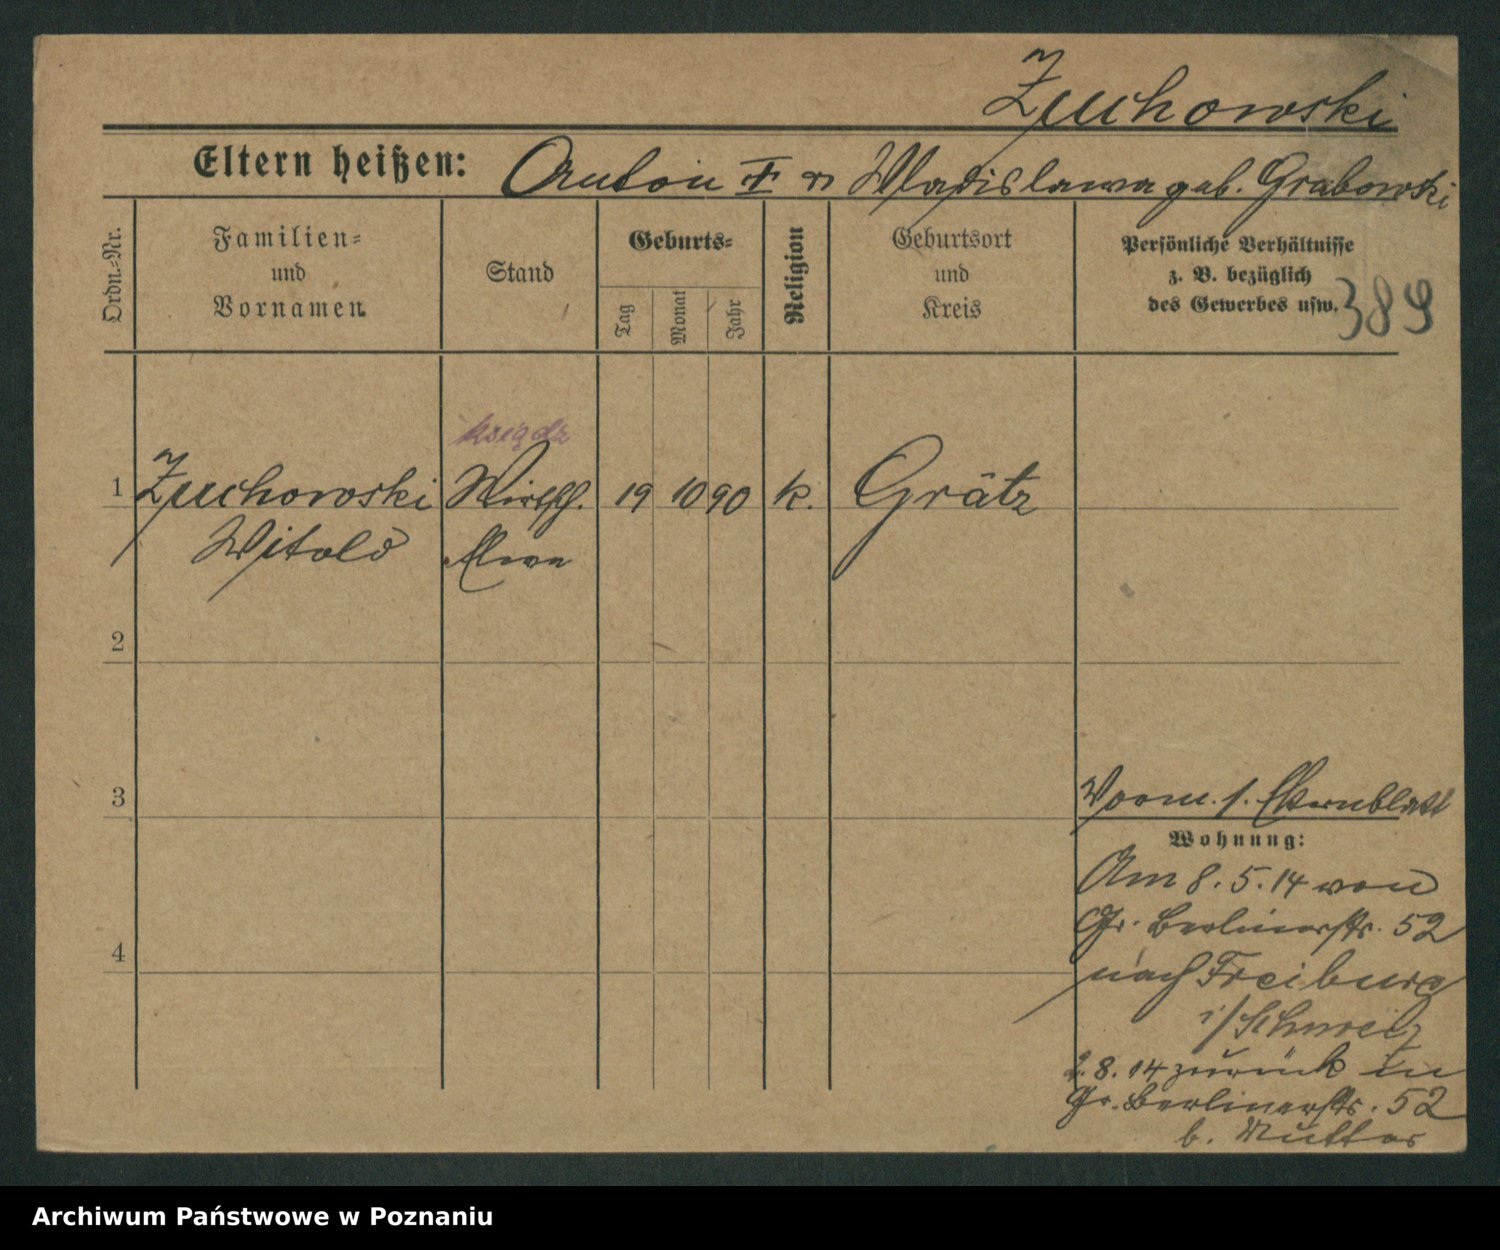 Zuchowski
Eltern heißen: Anton † u Wladislawa geb. Grabowski
Ordn.-Nr.
Familien-
und
Vornamen
Stand
Geburts-
Tag
Monat
Jahr
Religion
Geburtsort
und
Kreis
Persönliche Verhältnisse
z. B. bezüglich
des Gewerbes usw.
389
ksiądz
1 Zuchowski Wirtsch. 19 10 90 k. Grätz
Witold Eleve
2
3
Vorm. s. Elternblatt
Wohnung:
Am 8. 5. 14 von
Gr. Berlinerstr. 52
4
nach Freiburg
i/Schweiz
2. 8. 14 zurück in
Gr. Berlinerstr. 52
b. Mutter
Archiwum Państwowe w Poznaniu